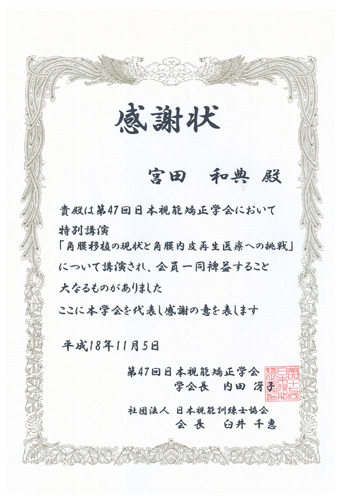 感謝状
宮田 和典 殿
貴殿は第47回日本視能矯正学会において
特別講演
「角膜移植の現状と角膜内皮再生医療への挑戦」
について講演され、会員一同裨益すること
大なるものがありました
ここに本学会を代表し感謝の意を表します
平成18年11月5日
第47回日本視能矯正学会
学会長 内田 冴子
社団法人 日本視能訓練士協会
会長 臼井 千恵